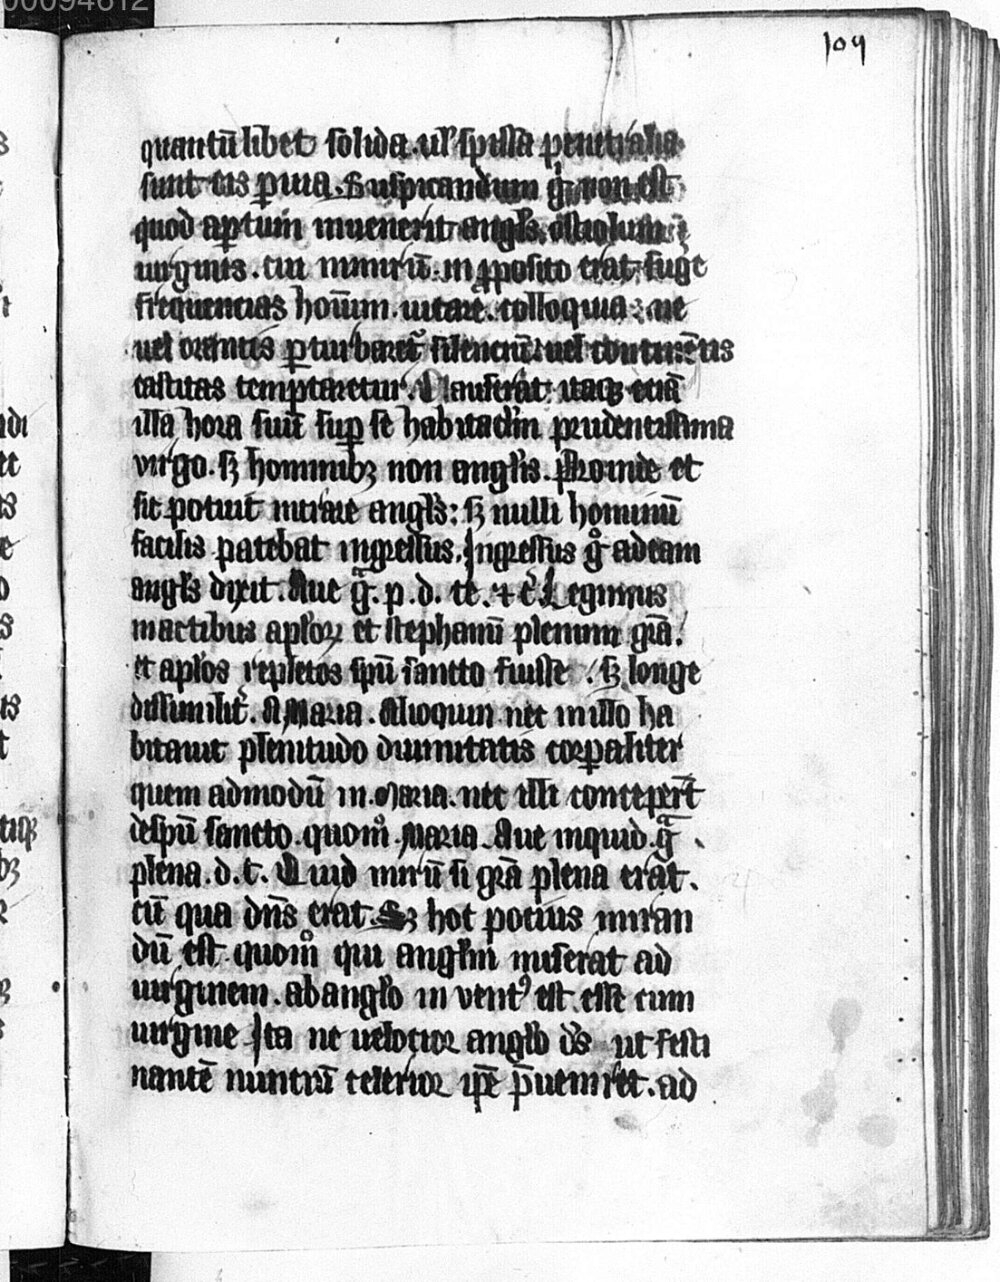 109
quantū libet solida. ul' spissa penetralia
sunt eis ꝑuia. Suspicandum gͦ non est
quod aꝑtum inuenerit angl's. ostiolum
uirginis. cui nimirū. in ꝓposito erat. fuge
frequencias hoīum. uitare. colloquia: ne
uel orantis ꝑturbaret᷑ silenciū. uel continētis
castitas temptaretur. Clauserat itaqꝫ eciā
illa hora suū suꝑ se habitac'lm prudentissima
virgo. sꝫ hominibꝫ non angl'is. Proinde et
sic potuit intrare angl's: sꝫ nulli hominū
facilis patebat ingressus. Ingressus gͦ ad eam
angl's dixit. Aue g̃. p. d. te. ⁊ c̃ Legimus
in actibus apl'oꝝ et stephanū plenum grā.
et apl'os repletos spū sancto fuisse. sꝫ longe
dissimilit̉. A Maria. Alioquin nec in illo ha
bitauit plenitudo diuinitatis corꝑaliter
quem admodū in. Maria. nec illi conceper̄t
de spū sancto. quomͦ. Maria. Aue inquid. g̃
plena. d. t. Quid mirū si grā plena erat.
cū qua dn̄s erat. Sꝫ hoc potius miran
dū est. quomͦ qui angl'm miserat ad
uirginem. ab angl'o in vent᷒ est. esse cum
uirgine Ita ne uelocior angl'o ds̄ ut festi
nantē nuntiū celerior ip̄e p̄ueniret. ad